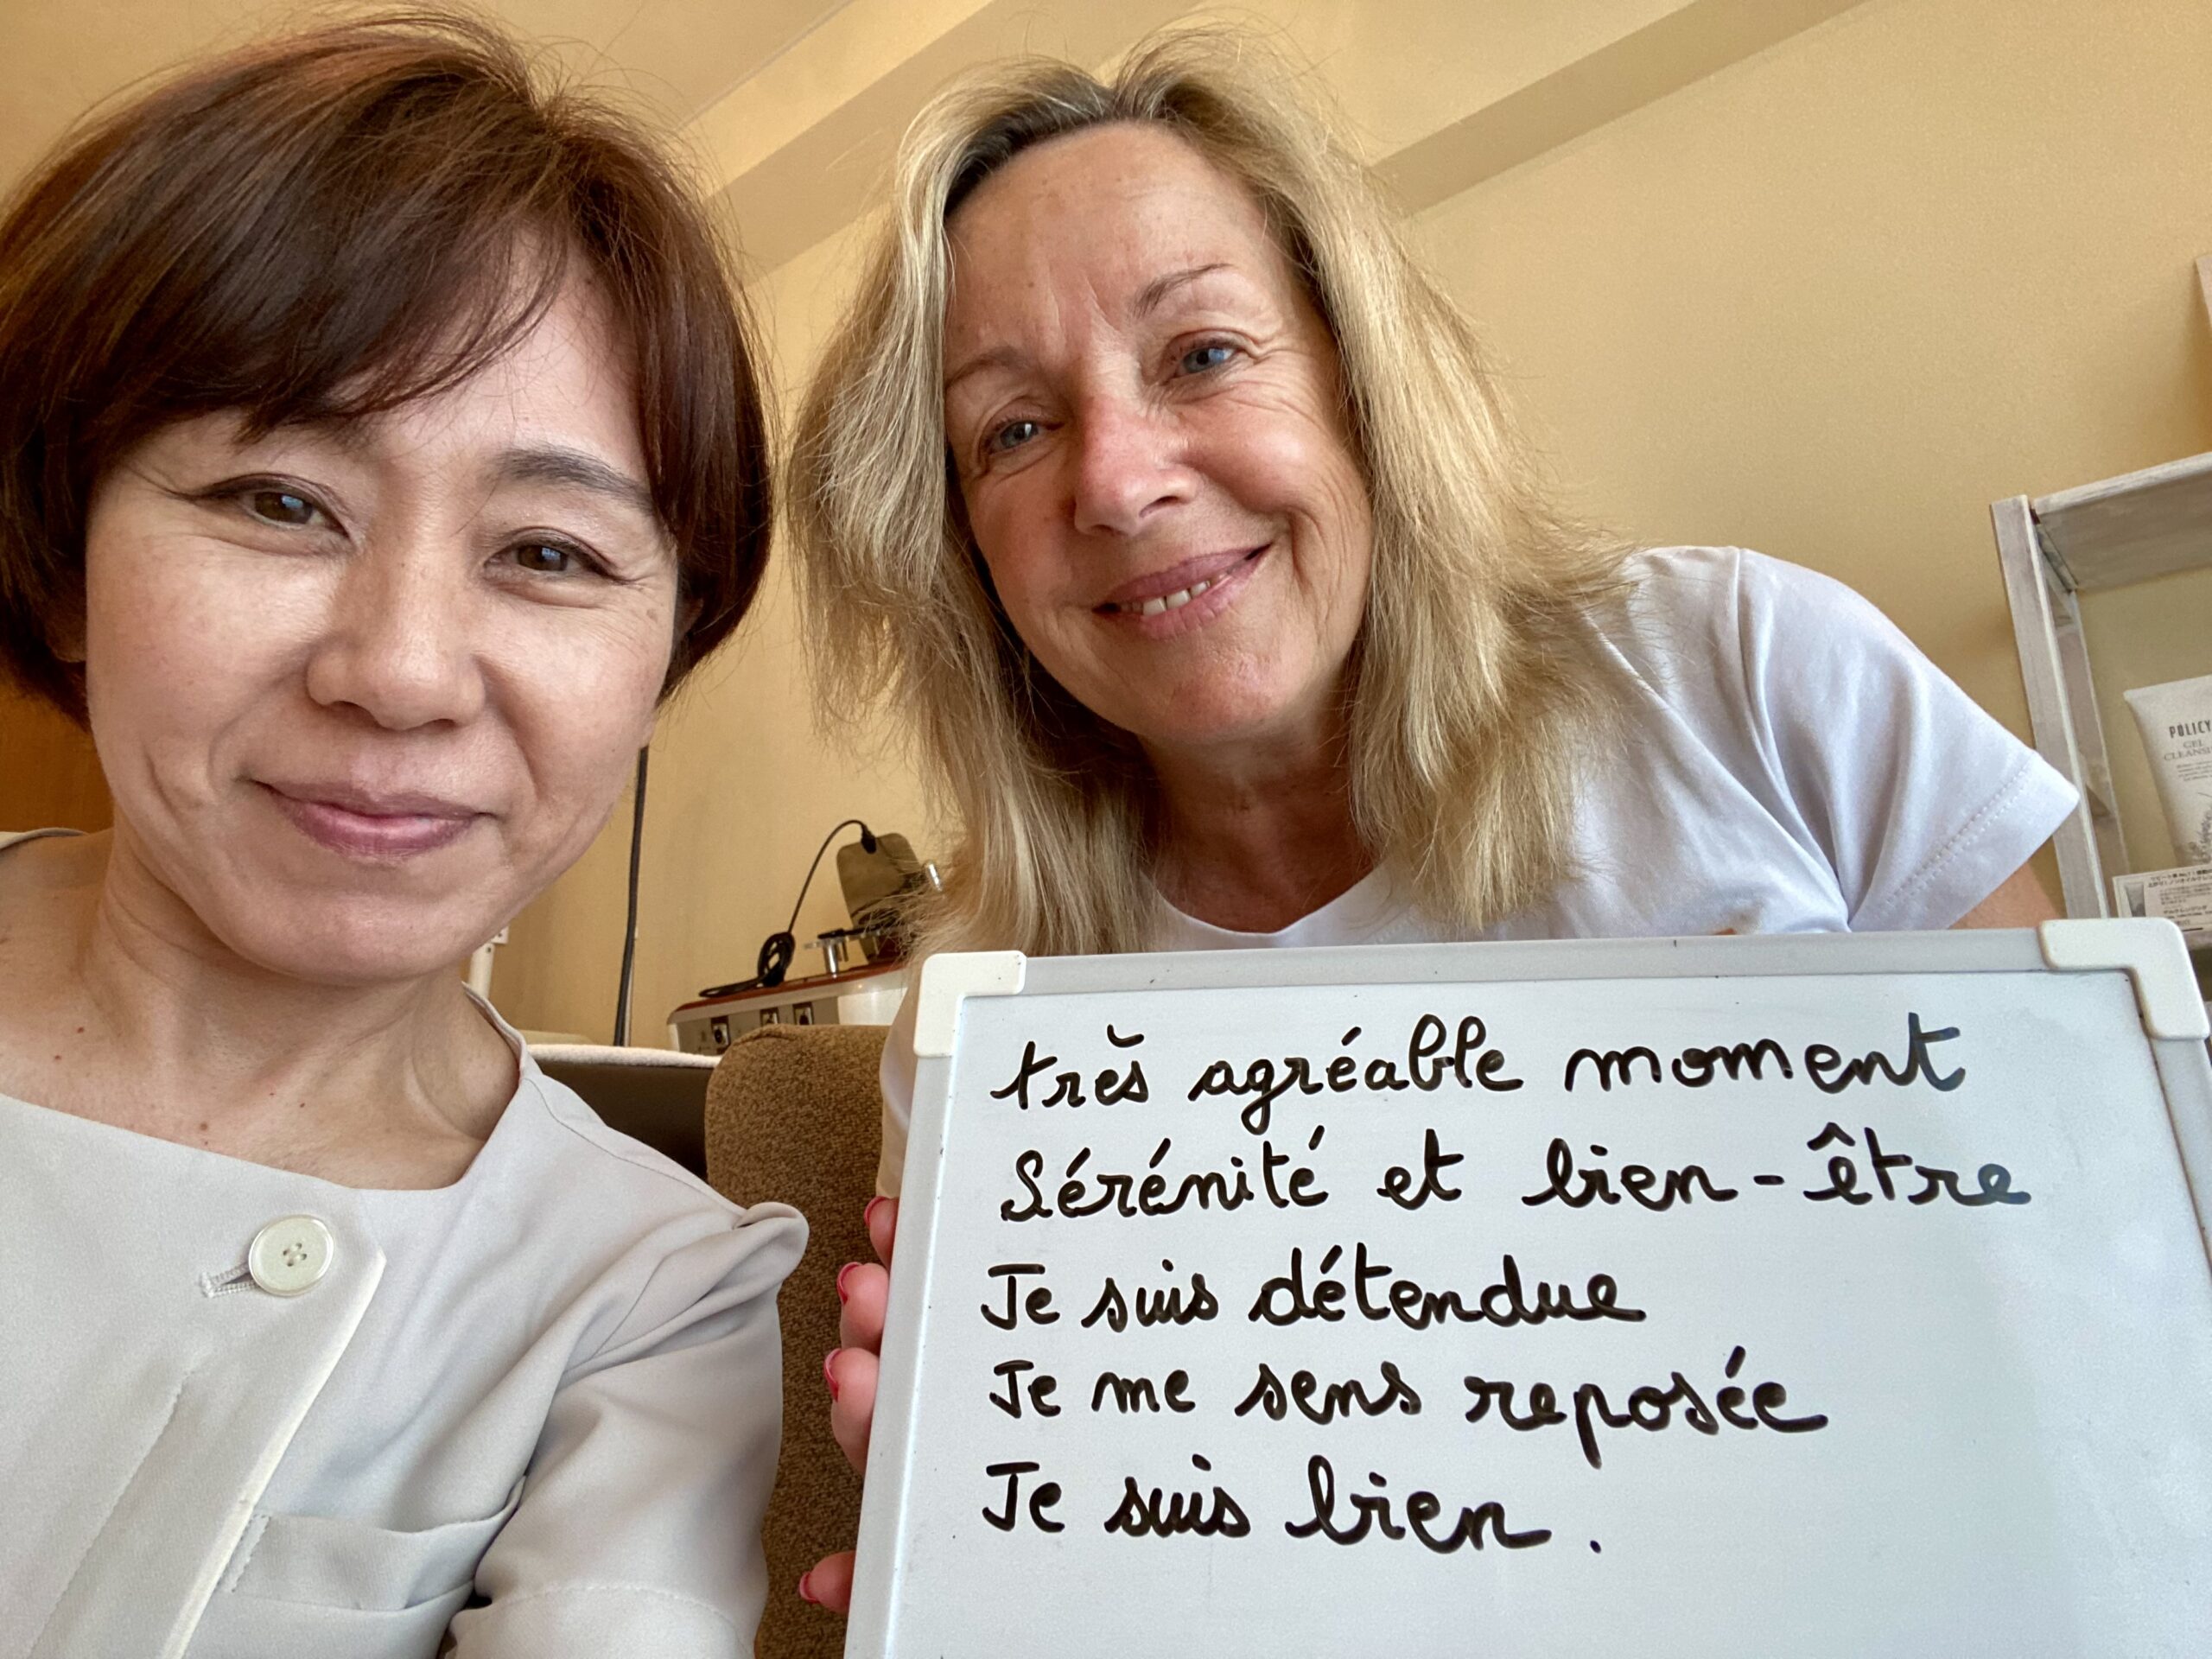 très agréable moment
Sérénité et bien-être
Je suis détendue
Je me sens reposée
Je suis bien.
POLICY
GEL
CLEANS